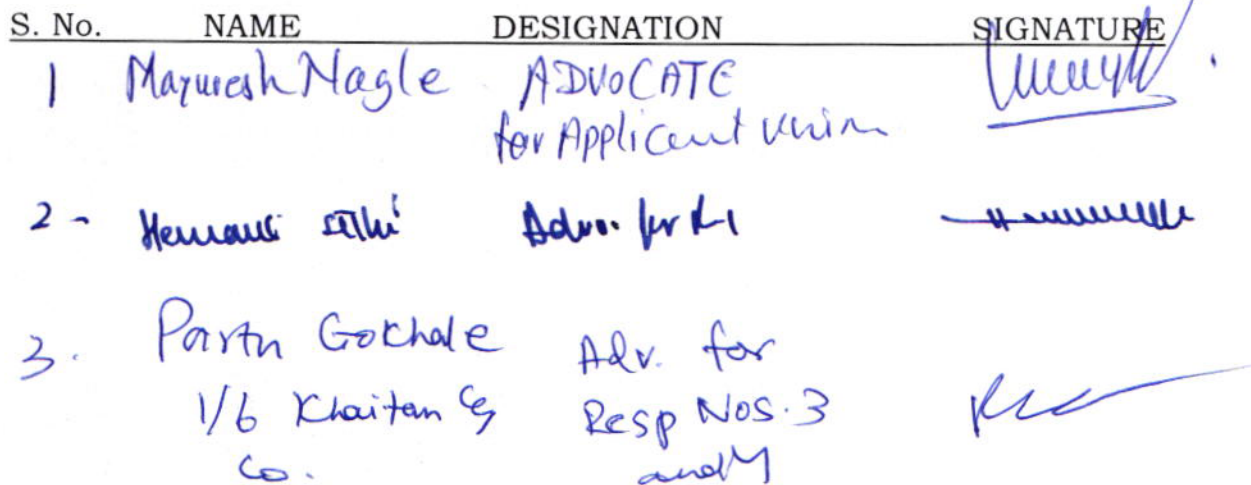 S. No. NAME DESIGNATION SIGNATURE
1 Mayuresh Nagle ADVOCATE
for Applicant Union
2 - Hemant Sethi Adv. for R1
3. Parth Gokhale Adv. for
I/b Khaitan & Resp Nos. 3
Co. and 4